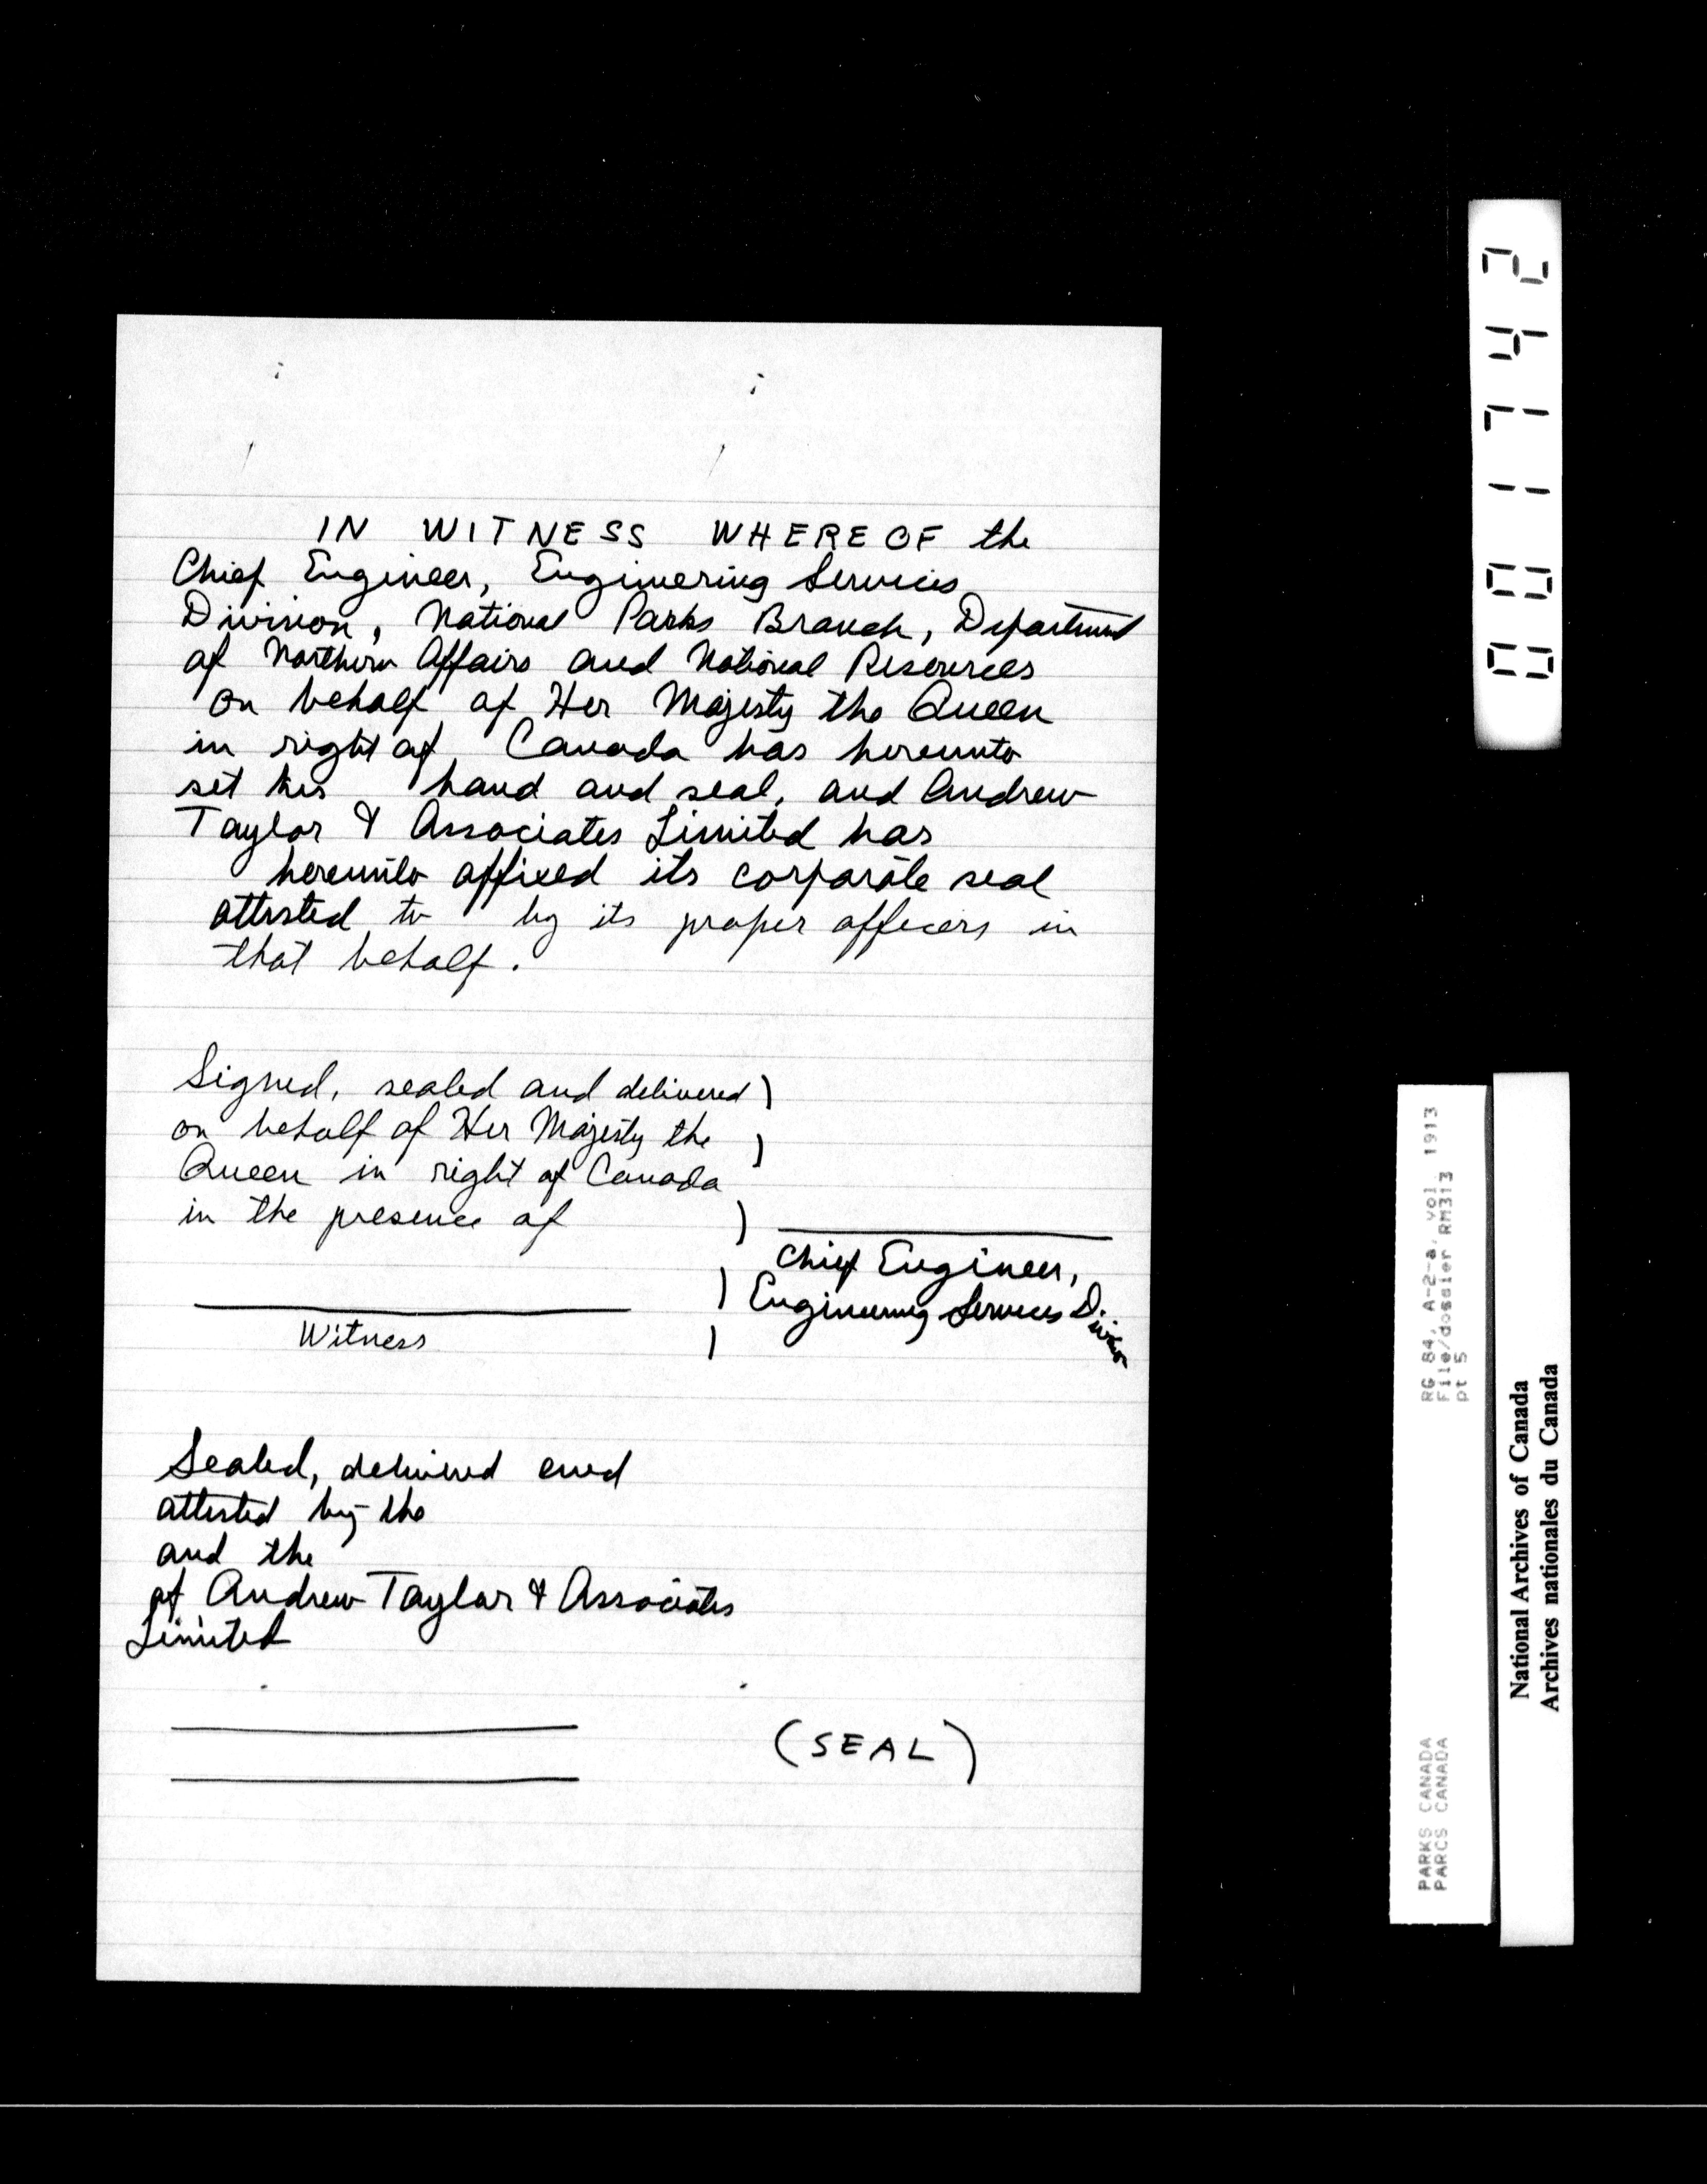 IN WITNESS WHEREOF the
Chief Engineer, Engineering Services
Division, National Parks Branch, Department
of Northern Affairs and National Resources
on behalf of Her Majesty the Queen
in right of Canada has hereunto
set his hand and seal, and Andrew
Taylor & Associates Limited has
hereunto affixed its corporate seal
attested to by its proper officers in
that behalf.
Signed, sealed and delivered )
on behalf of Her Majesty the )
Queen in right of Canada
in the presence of )
Chief Engineer,
) Engineering Services Division
Witness )
Sealed, delivered and
attested by the
and the
of Andrew Taylor & Associates
Limited
(SEAL)
001742
RG 84, A-2-a, vol. 1913
File/dossier RM313
pt 5
PARKS CANADA
PARCS CANADA
National Archives of Canada
Archives nationales du Canada